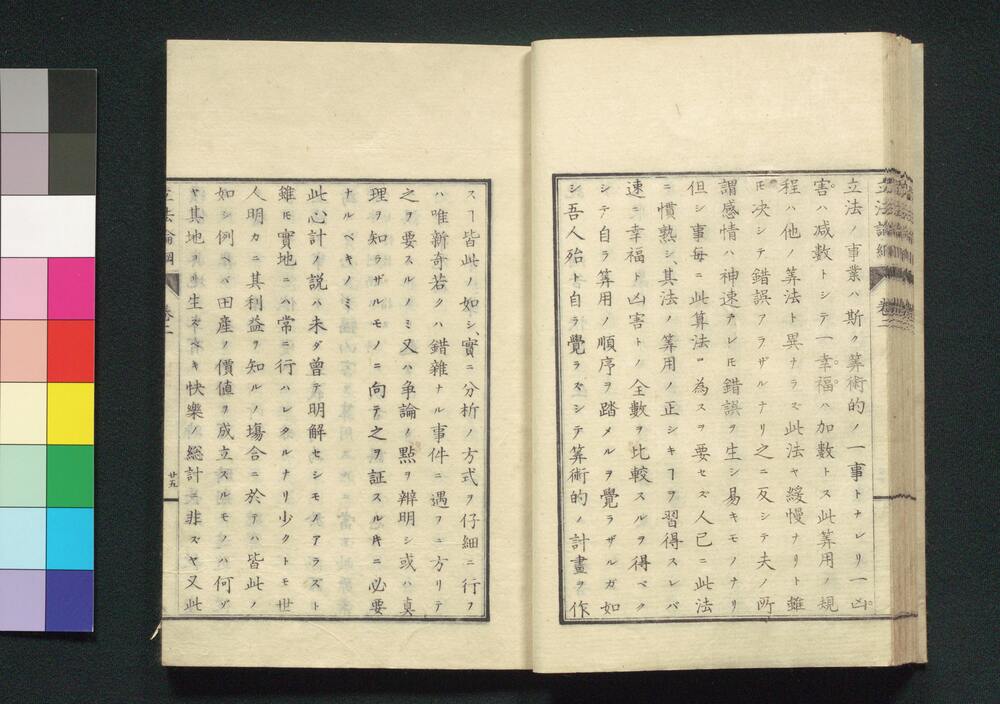 立法論綱 卷二
立法ノ事業ハ斯ク筭術的ノ一事トナレリ一凶
害ハ减數トシテ一幸福ハ加數トス此筭用ノ規
程ハ他ノ筭法ト異ナラズ此法ヤ緩慢ナリト雖
モ决シテ錯誤アラザルナリ之ニ反シテ夫ノ所
謂感情ハ神速ナレモ錯誤ヲ生シ易キモノナリ
但シ事毎ニ此算法ヲ為スヲ要セズ人已ニ此法
ニ慣熟シ其法ノ筭用ノ正シキヿヲ習得スレバ
速ニ幸福ト凶害トノ全數ヲ比較スルヲ得ベク
シテ自ラ筭用ノ順序ヲ踏メルヲ覺ラザルガ如
シ吾人殆ト自ラ覺ラズシテ筭術的ノ計畫ヲ作
スヿ皆此ノ如シ實ニ分析ノ方式ヲ仔細ニ行フ
ハ唯新奇若クハ錯雜ナル事件ニ遇フニ方リテ
之ヲ要スルノミ又ハ争論ノ點ヲ辨明シ或ハ眞
理ヲ知ラザルモノニ向テ之ヲ証スル𪜈ニ必要
ナルベキノミ
此心計ノ説ハ未ダ曾テ明解セシモノアラズト
雖モ實地ニハ常ニ行ハレタルナリ少クトモ世
人明カニ其利益ヲ知ルノ塲合ニ於テハ皆此ノ
如シ例ヘバ田産ノ價値ヲ成立スルモノハ何ゾ
ヤ其地ヨリ生ズベキ快樂ノ総計ニ非ズヤ又此
立法論綱 卷二 廿五